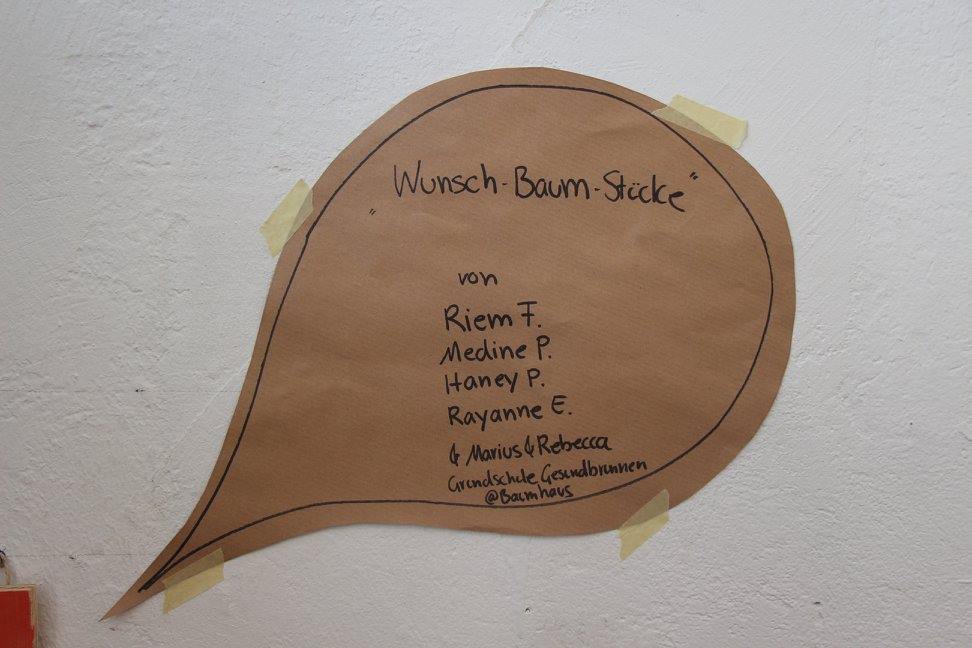 „Wunsch-Baum-Stücke“
von
Riem F.
Medine P.
Haney P.
Rayanne E.
& Marius & Rebecca
Grundschule Gesundbrunnen
@Baumhaus